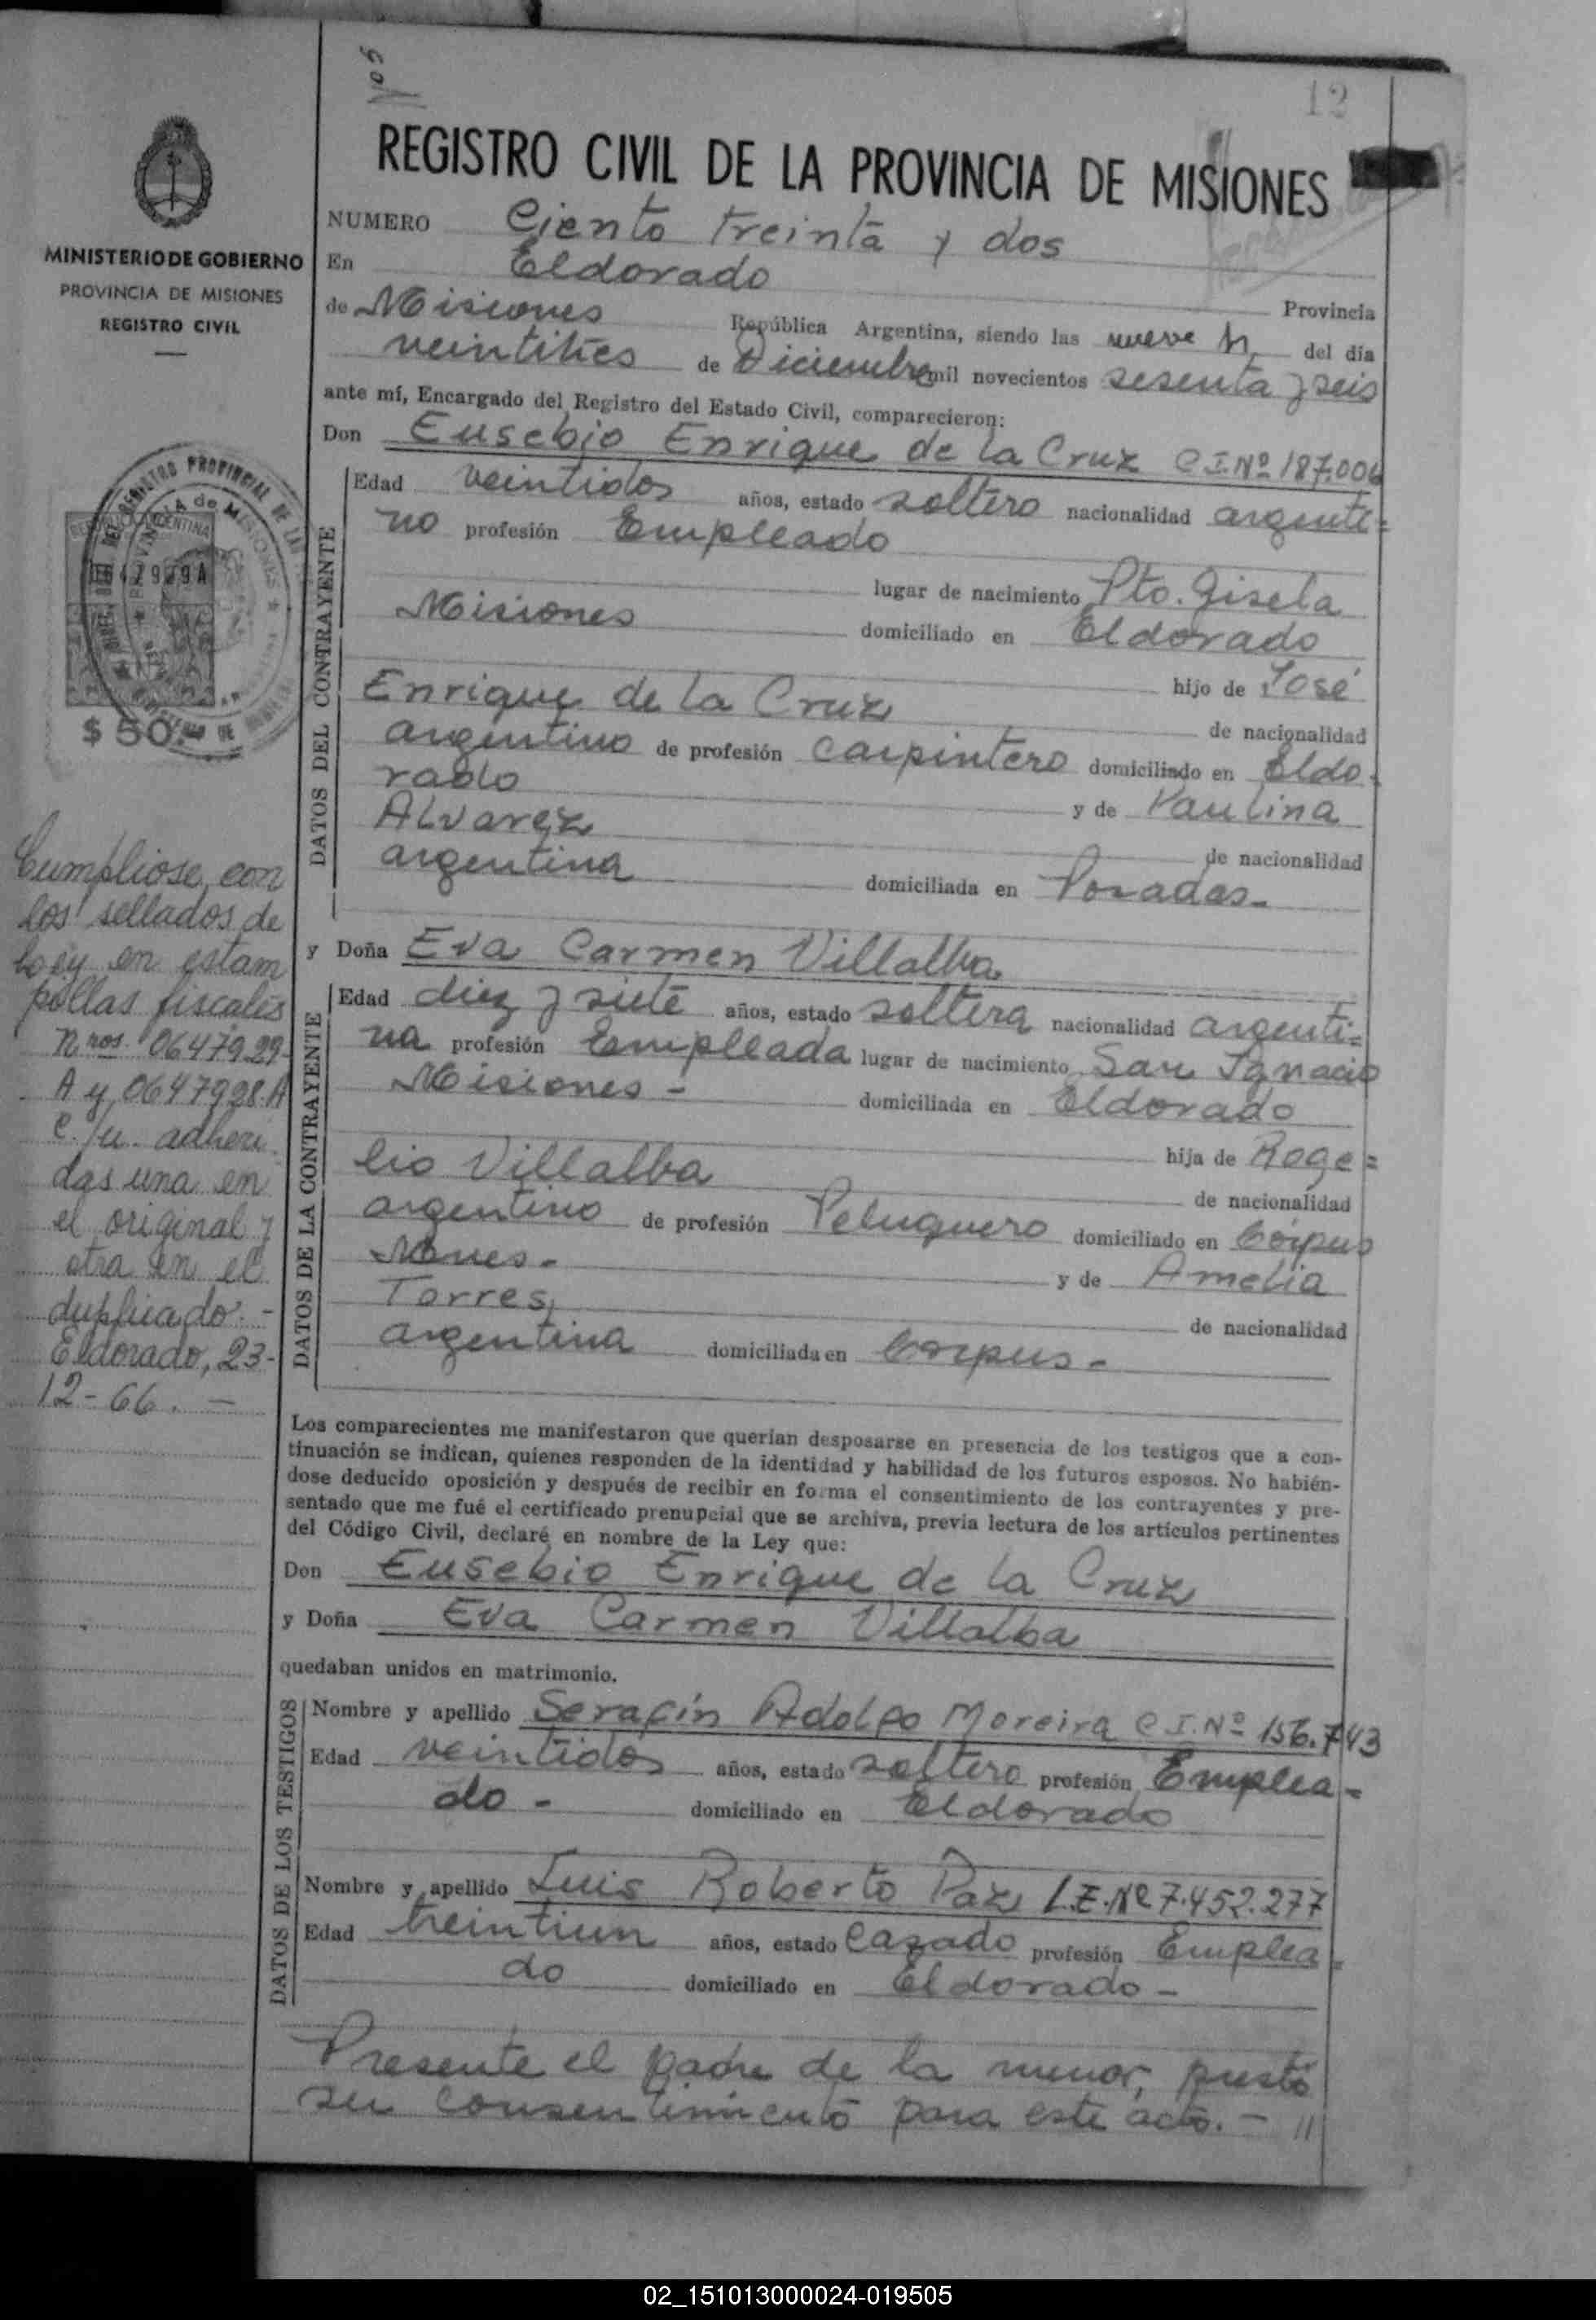 12
REGISTRO CIVIL DE LA PROVINCIA DE MISIONES
MINISTERIO DE GOBIERNO
PROVINCIA DE MISIONES
REGISTRO CIVIL
NUMERO Ciento treinta y dos
En Eldorado Provincia
de Misiones República Argentina, siendo las nueve h del día
veintitres de Diciembre mil novecientos sesenta y seis
ante mí, Encargado del Registro del Estado Civil, comparecieron:
Don Eusebio Enrique de la Cruz C.I.Nº 187.006
DATOS DEL CONTRAYENTE
Edad veintidos años, estado soltero nacionalidad argenti=
no profesión Empleado
lugar de nacimiento Pto. Gisela
Misiones domiciliado en Eldorado
hijo de José
Enrique de la Cruz de nacionalidad
argentino de profesión carpintero domiciliado en Eldo-
rado y de Paulina
Alvarez de nacionalidad
argentina domiciliada en Posadas-
$ 50.-
Cumpliose con
los sellados de
Ley en estam
pillas fiscales
Nros. 0647929-
A y 0647928-A
c./u. adheri
das una en
el original y
otra en el
duplicado.-
Eldorado, 23-
12-66. -
y Doña Eva Carmen Villalba
DATOS DE LA CONTRAYENTE
Edad diez y siete años, estado soltera nacionalidad argenti=
na profesión Empleada lugar de nacimiento San Ignacio
Misiones - domiciliada en Eldorado
hija de Roge=
lio Villalba de nacionalidad
argentino de profesión Peluquero domiciliado en Corpus
Mnes.- y de Amelia
Torres, de nacionalidad
argentina domiciliada en Corpus.-
Los comparecientes me manifestaron que querían desposarse en presencia de los testigos que a con-
tinuación se indican, quienes responden de la identidad y habilidad de los futuros esposos. No habién-
dose deducido oposición y después de recibir en forma el consentimiento de los contrayentes y pre-
sentado que me fué el certificado prenupcial que se archiva, previa lectura de los artículos pertinentes
del Código Civil, declaré en nombre de la Ley que:
Don Eusebio Enrique de la Cruz
y Doña Eva Carmen Villalba
quedaban unidos en matrimonio.
DATOS DE LOS TESTIGOS
Nombre y apellido Serafín Adolfo Moreira C.I.Nº 156.743
Edad veintidos años, estado soltero profesión Emplea-
do - domiciliado en Eldorado
Nombre y apellido Luis Roberto Paz L.E.Nº 7.452.277
Edad treintiun años, estado Casado profesión Emplea=
do domiciliado en Eldorado-
Presente el padre de la menor, prestó
su consentimiento para este acto.- //
02_151013000024-019505